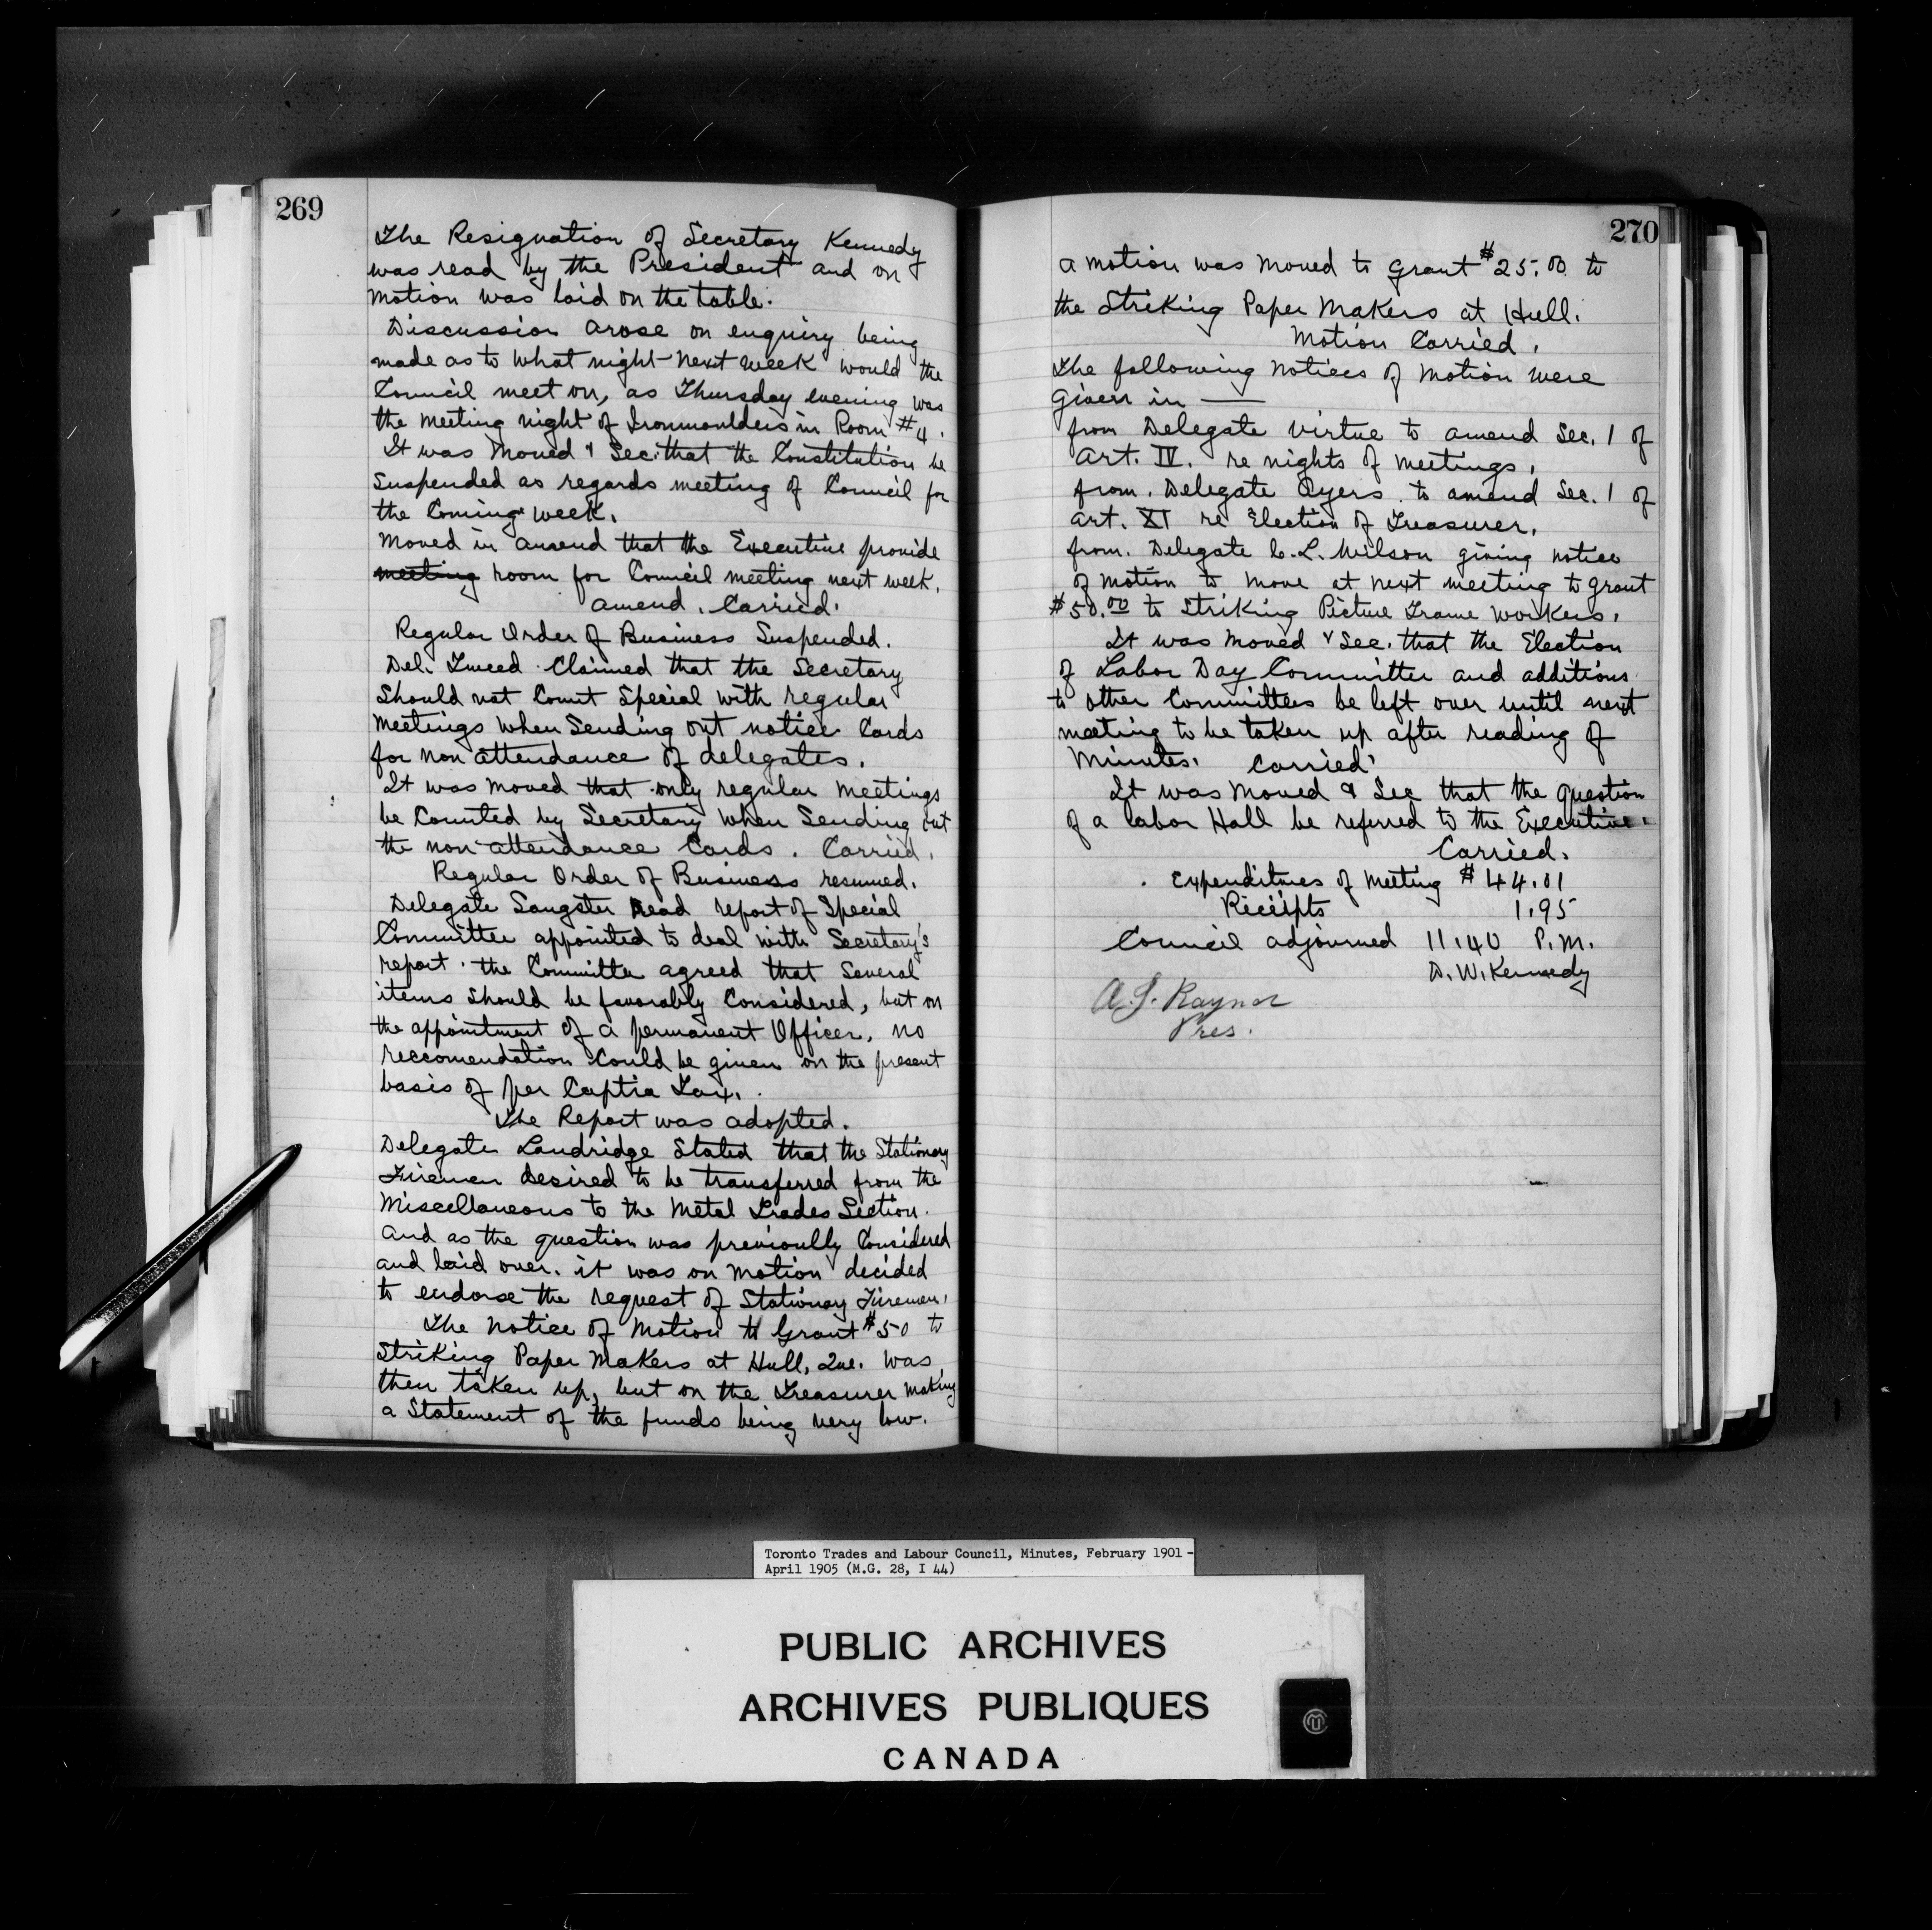 269
The Resignation of Secretary Kennedy
was read by the President and on
motion was laid on the table.
Discussion arose on enquiry being
made as to what night next week would the
Council meet on, as Thursday evening was
the meeting night of Ironmoulders in Room #4.
It was moved & Sec. that the Constitution be
suspended as regards meeting of Council for
the Coming week.
Moved in amend that the Executive provide
meeting room for Council meeting next week.
amend. Carried.
Regular Order of Business Suspended.
Del. Tweed Claimed that the Secretary
should not Count Special with regular
meetings when sending out notice Cards
for non attendance of delegates.
It was moved that only regular meetings
be Counted by Secretary when Sending out
the non attendance Cards. Carried.
Regular Order of Business resumed.
Delegate Sangster Read report of Special
Committee appointed to deal with Secretary's
report. the Committe agreed that several
items should be favorably Considered, but on
the appointment of a permanent Officer, no
reccomendation Could be given on the present
basis of per Captia Tax.
The Report was adopted.
Delegate Landridge Stated that the Stationary
Firemen desired to be transferred from the
Miscellaneous to the Metal Trades Section.
And as the question was previoully Considered
and laid over. it was on motion decided
to endorse the request of Stationary Firemen.
The notice of Motion to Grant $50 to
Striking Paper Makers at Hull, Que. was
then taken up, but on the Treasurer making
a Statement of the funds being very low.
270
a motion was moved to grant $25.00 to
the Striking Paper Makers at Hull.
Motion Carried.
The following notices of motion were
given in —
from Delegate Virtue to amend Sec. 1 of
Art. IV. re nights of meetings.
from. Delegate Ayers. to amend Sec. 1 of
Art. XI re Election of Treasurer.
from. Delegate C. L. Wilson giving notice
of motion to move at next meeting to grant
$50.00 to Striking Picture Frame Workers.
It was moved & Sec. that the Election
of Labor Day Committee and additions
to other Committees be left over until next
meeting to be taken up after reading of
Minutes. Carried.
It was moved & Sec that the question
of a labor Hall be referred to the Executive.
Carried.
Expenditures of Meeting $44.01
Receipts 1.95
Council adjourned 11.40 P.M.
D. W. Kennedy
A. J. Raynor
Pres.
Toronto Trades and Labour Council, Minutes, February 1901 -
April 1905 (M.G. 28, I 44)
PUBLIC ARCHIVES
ARCHIVES PUBLIQUES
CANADA